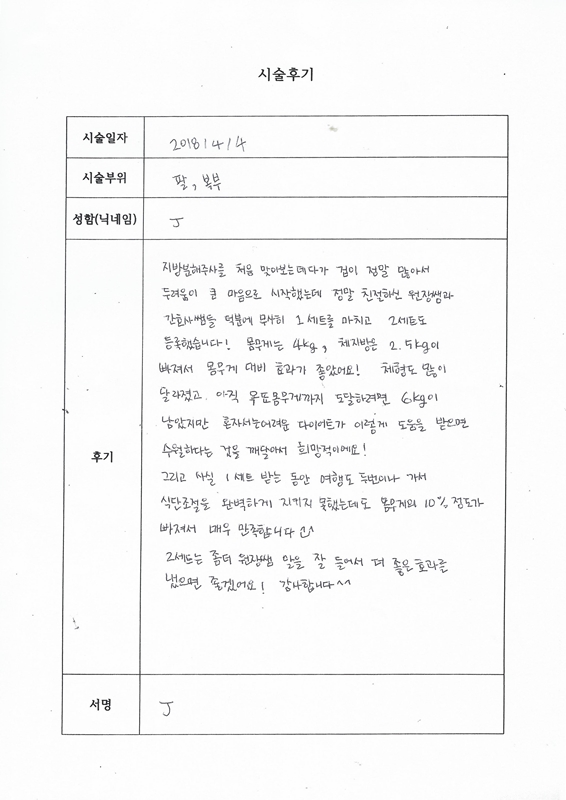 시술후기
시술일자 2018/4/4
시술부위 팔, 복부
성함(닉네임) J
후기
지방분해주사를 처음 맞아보는데다가 겁이 정말 많아서
두려움이 큰 마음으로 시작했는데 정말 친절하신 원장쌤과
간호사쌤들 덕분에 무사히 1세트를 마치고 2세트도
등록했습니다! 몸무게는 4kg, 체지방은 2.5kg이
빠져서 몸무게 대비 효과가 좋았어요! 체형도 많이
달라졌고. 아직 목표몸무게까지 도달하려면 6kg이
남았지만 혼자서는어려운 다이어트가 이렇게 도움을 받으면
수월하다는 것을 깨달아서 희망적이에요!
그리고 사실 1세트 받는 동안 여행도 두번이나 가서
식단조절을 완벽하게 지키지 못했는데도 몸무게의 10%정도가
빠져서 매우 만족합니다
2세트는 좀더 원장쌤 말을 잘 들어서 더 좋은효과를
냈으면 좋겠어요! 감사합니다^^
서명 J